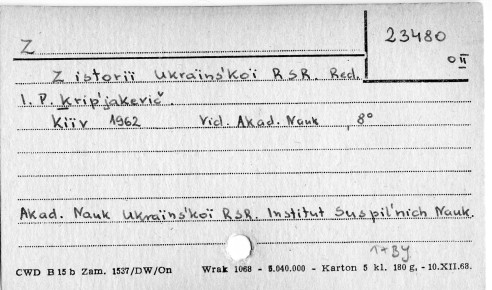 Z
23480
o II
Z istoriï Ukraïns'koï RSR. Red.
I. P. Krip'jakevič.
Kiïv 1962 Vid. Akad. Nauk, 8°
Akad. Nauk Ukraïns'koï RSR. Institut Suspil'nich Nauk.
1+BY
CWD B 15 b Zam. 1537/DW/On Wrak 1068 - 5.040.000 - Karton 5 kl. 180 g, - 10.XII.68.